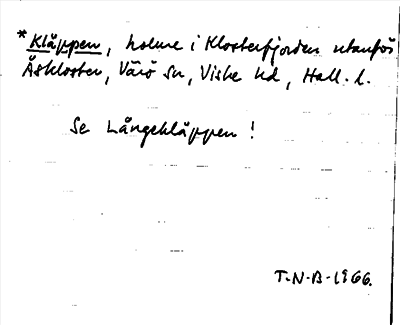 * Kläppen, holme i Klosterfjorden utanför
Åskloster, Värö sn, Viske hd, Hall. l.
Se Långekläppen!
T-N-B-1966.